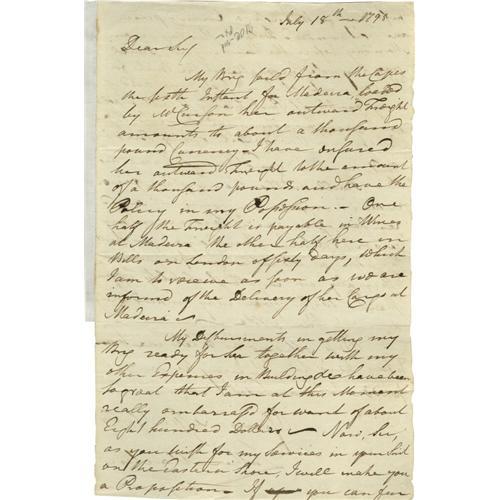 July 18th 1795
Dear Sir
My Brig sail'd from the Capes
the sixth Instant for Madeira loaded
by Mr Curson her outward Freight
amounts to about a thousand
pound Currency, I have insured
her outward Freight to the amount
of a thousand pounds and have the
Policy in my Possession. - One
half the Freight is payable in Wines
at Madeira the other half here in
Bills on London of sixty Days, which
I am to receive as soon as we are
informed of the Delivery of her Cargo at
Madeira
My Disbursments in getting my
Brig ready for Sea together with my
other Expences in Building &c have been
so great that I am at this Moment
really embarrass'd for want of about
Eight hundred Dollars - Now, Sir,
as you wish for my Services in your Suit
on the Eastern Shore, I will make you
a Proposition - If you can fur